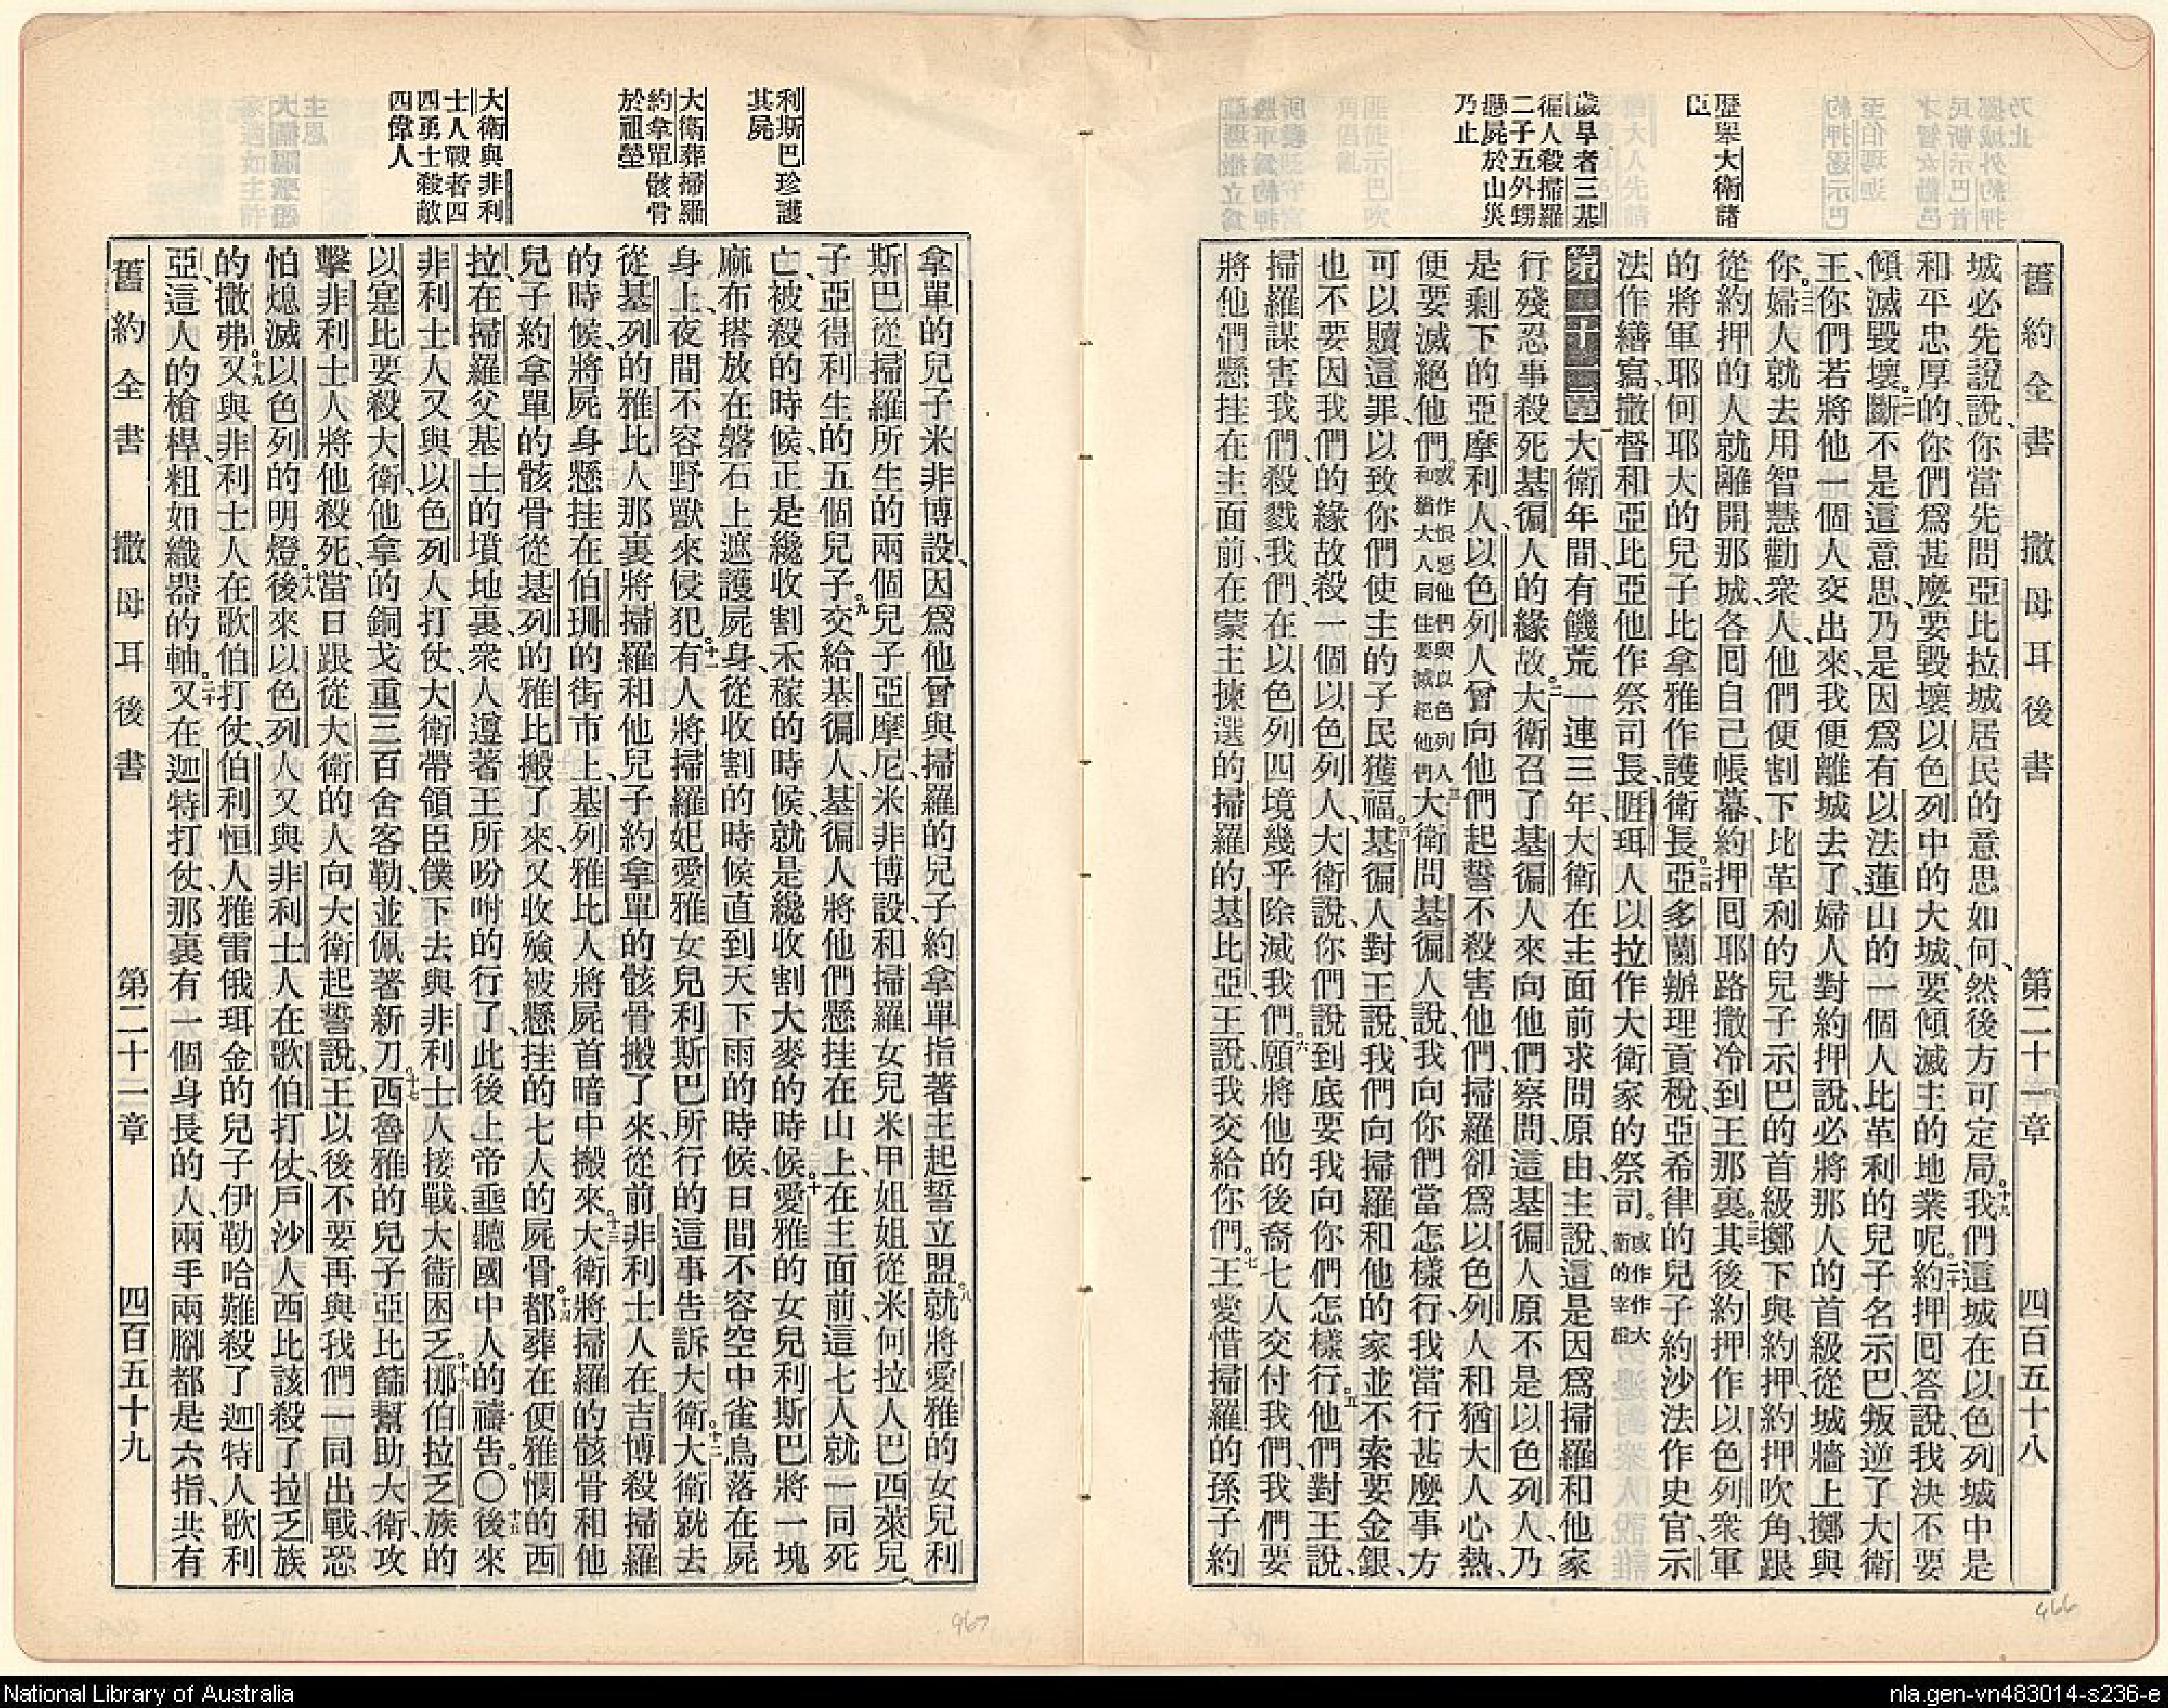 舊約全書　撒母耳後書　第二十一章　四百五十八
歷舉大衛諸
臣
歲旱者三基
徧人殺掃羅
二子五外甥
懸屍於山災
乃止
城必先說說、你當先問亞比拉城居民的意思如何、然後方可定局。十九我們這城在以色列城中是
和平忠厚的、你們爲甚麼要毀壞以色列中的大城、要傾滅主的地業呢。二十約押回答說、我決不要
傾滅毀壞。二一斷不是這意思、乃是因爲有以法蓮山的一個人比革利的兒子名示巴、叛逆了大衛
王、你們若將他一個人交出來、我便離城去了、婦人對約押說、必將那人的首級從城牆上擲與
你。二二婦人就去用智慧勸衆人、他們便割下比革利的兒子示巴的首級擲下與約押、約押吹角、跟
從約押的人就離開那城、各回自己帳幕、約押回耶路撒冷到王那裏。二三其後約押作以色列衆軍
的將軍、耶何耶大的兒子比拿雅作護衛長。二四亞多蘭辦理貢稅、亞希律的兒子約沙法作史官、示
法作繕寫、撒督和亞比亞他作祭司長、睚珥人以拉作大衛家的祭司。或作作大衛的宰相
第二十一章一大衛年間、有饑荒一連三年、大衛在主面前求問原由、主說、這是因爲掃羅和他家
行殘忍事殺死基徧人的緣故。二大衛召了基徧人來向他們察問、這基徧人原不是以色列人、乃
是剩下的亞摩利人、以色列人曾向他們起誓不殺害他們、掃羅卻爲以色列人和猶大人心熱、
便要滅絕他們。或作恨惡他們與以色列人和猶大人同住要滅絕他們三大衛問基徧人說、我向你們當怎樣行、我當行甚麼事方
可以贖這罪、以致你們使主的子民獲福。四基徧人對王說、我們向掃羅和他的家並不索要金銀、
也不要因我們的緣故殺一個以色列人、大衛說、你們說到底要我向你們怎樣行。五他們對王說、
掃羅謀害我們、殺戮我們、在以色列四境幾乎除滅我們。六願將他的後裔七人交付我們、我們要
將他們懸挂在主面前、在蒙主揀選的掃羅的基比亞、王說、我交給你們。七王愛惜掃羅的孫子約
利斯巴珍護
其屍
大衛葬掃羅
約拿單骸骨
於祖塋
大衛與非利
士人戰者四
四勇士殺敵
四偉人
拿單的兒子米非博設、因爲他曾與掃羅的兒子約拿單指著主起誓立盟。八就將愛雅的女兒利
斯巴從掃羅所生的兩個兒子亞摩尼、米非博設、和掃羅女兒米甲姐姐從米何拉人巴西萊兒
子亞得利生的五個兒子。九交給基徧人、基徧人將他們懸挂在山上、在主面前、這七人就一同死
亡、被殺的時候、正是纔收割禾稼的時候、就是纔收割大麥的時候。十愛雅的女兒利斯巴將一塊
麻布搭放在磐石上遮護屍身、從收割的時候直到天下雨的時候、日間不容空中雀鳥落在屍
身上、夜間不容野獸來侵犯。十一有人將掃羅妃愛雅女兒利斯巴所行的這事告訴大衛。十二大衛就去
從基列的雅比人那裏將掃羅和他兒子約拿單的骸骨搬了來、從前非利士人在吉博殺掃羅
的時候、將屍身懸挂在伯珊的街市上、基列雅比人將屍首暗中搬來。十三大衛將掃羅的骸骨和他
兒子約拿單的骸骨從基列的雅比搬了來、又收殮被懸挂的七人的屍骨。十四都葬在便雅憫的西
拉、在掃羅父基士的墳地裏、衆人遵著王所吩咐的行了、此後上帝垂聽國中人的禱告。〇十五後來
非利士人又與以色列人打仗、大衛帶領臣僕下去與非利士人接戰、大衛困乏。十六挪伯拉乏族的
以寔比要殺大衛、他拿的銅戈重三百舍客勒、並佩著新刀。十七西魯雅的兒子亞比篩幫助大衛、攻
擊非利士人將他殺死、當日跟從大衛的人向大衛起誓說、王以後不要再與我們一同出戰、恐
怕熄滅以色列的明燈。十八後來以色列人又與非利士人在歌伯打仗、戶沙人西比該殺了拉乏族
的撒弗。十九又與非利士人在歌伯打仗、伯利恒人雅雷俄珥金的兒子伊勒哈難殺了迦特人歌利
亞、這人的槍桿、粗如織器的軸。二十又在迦特打仗、那裏有一個身長的人、兩手兩腳都是六指、共有
舊約全書　撒母耳後書　第二十一章　四百五十九
466
467
National Library of Australia
nla.gen-vn483014-s236-e